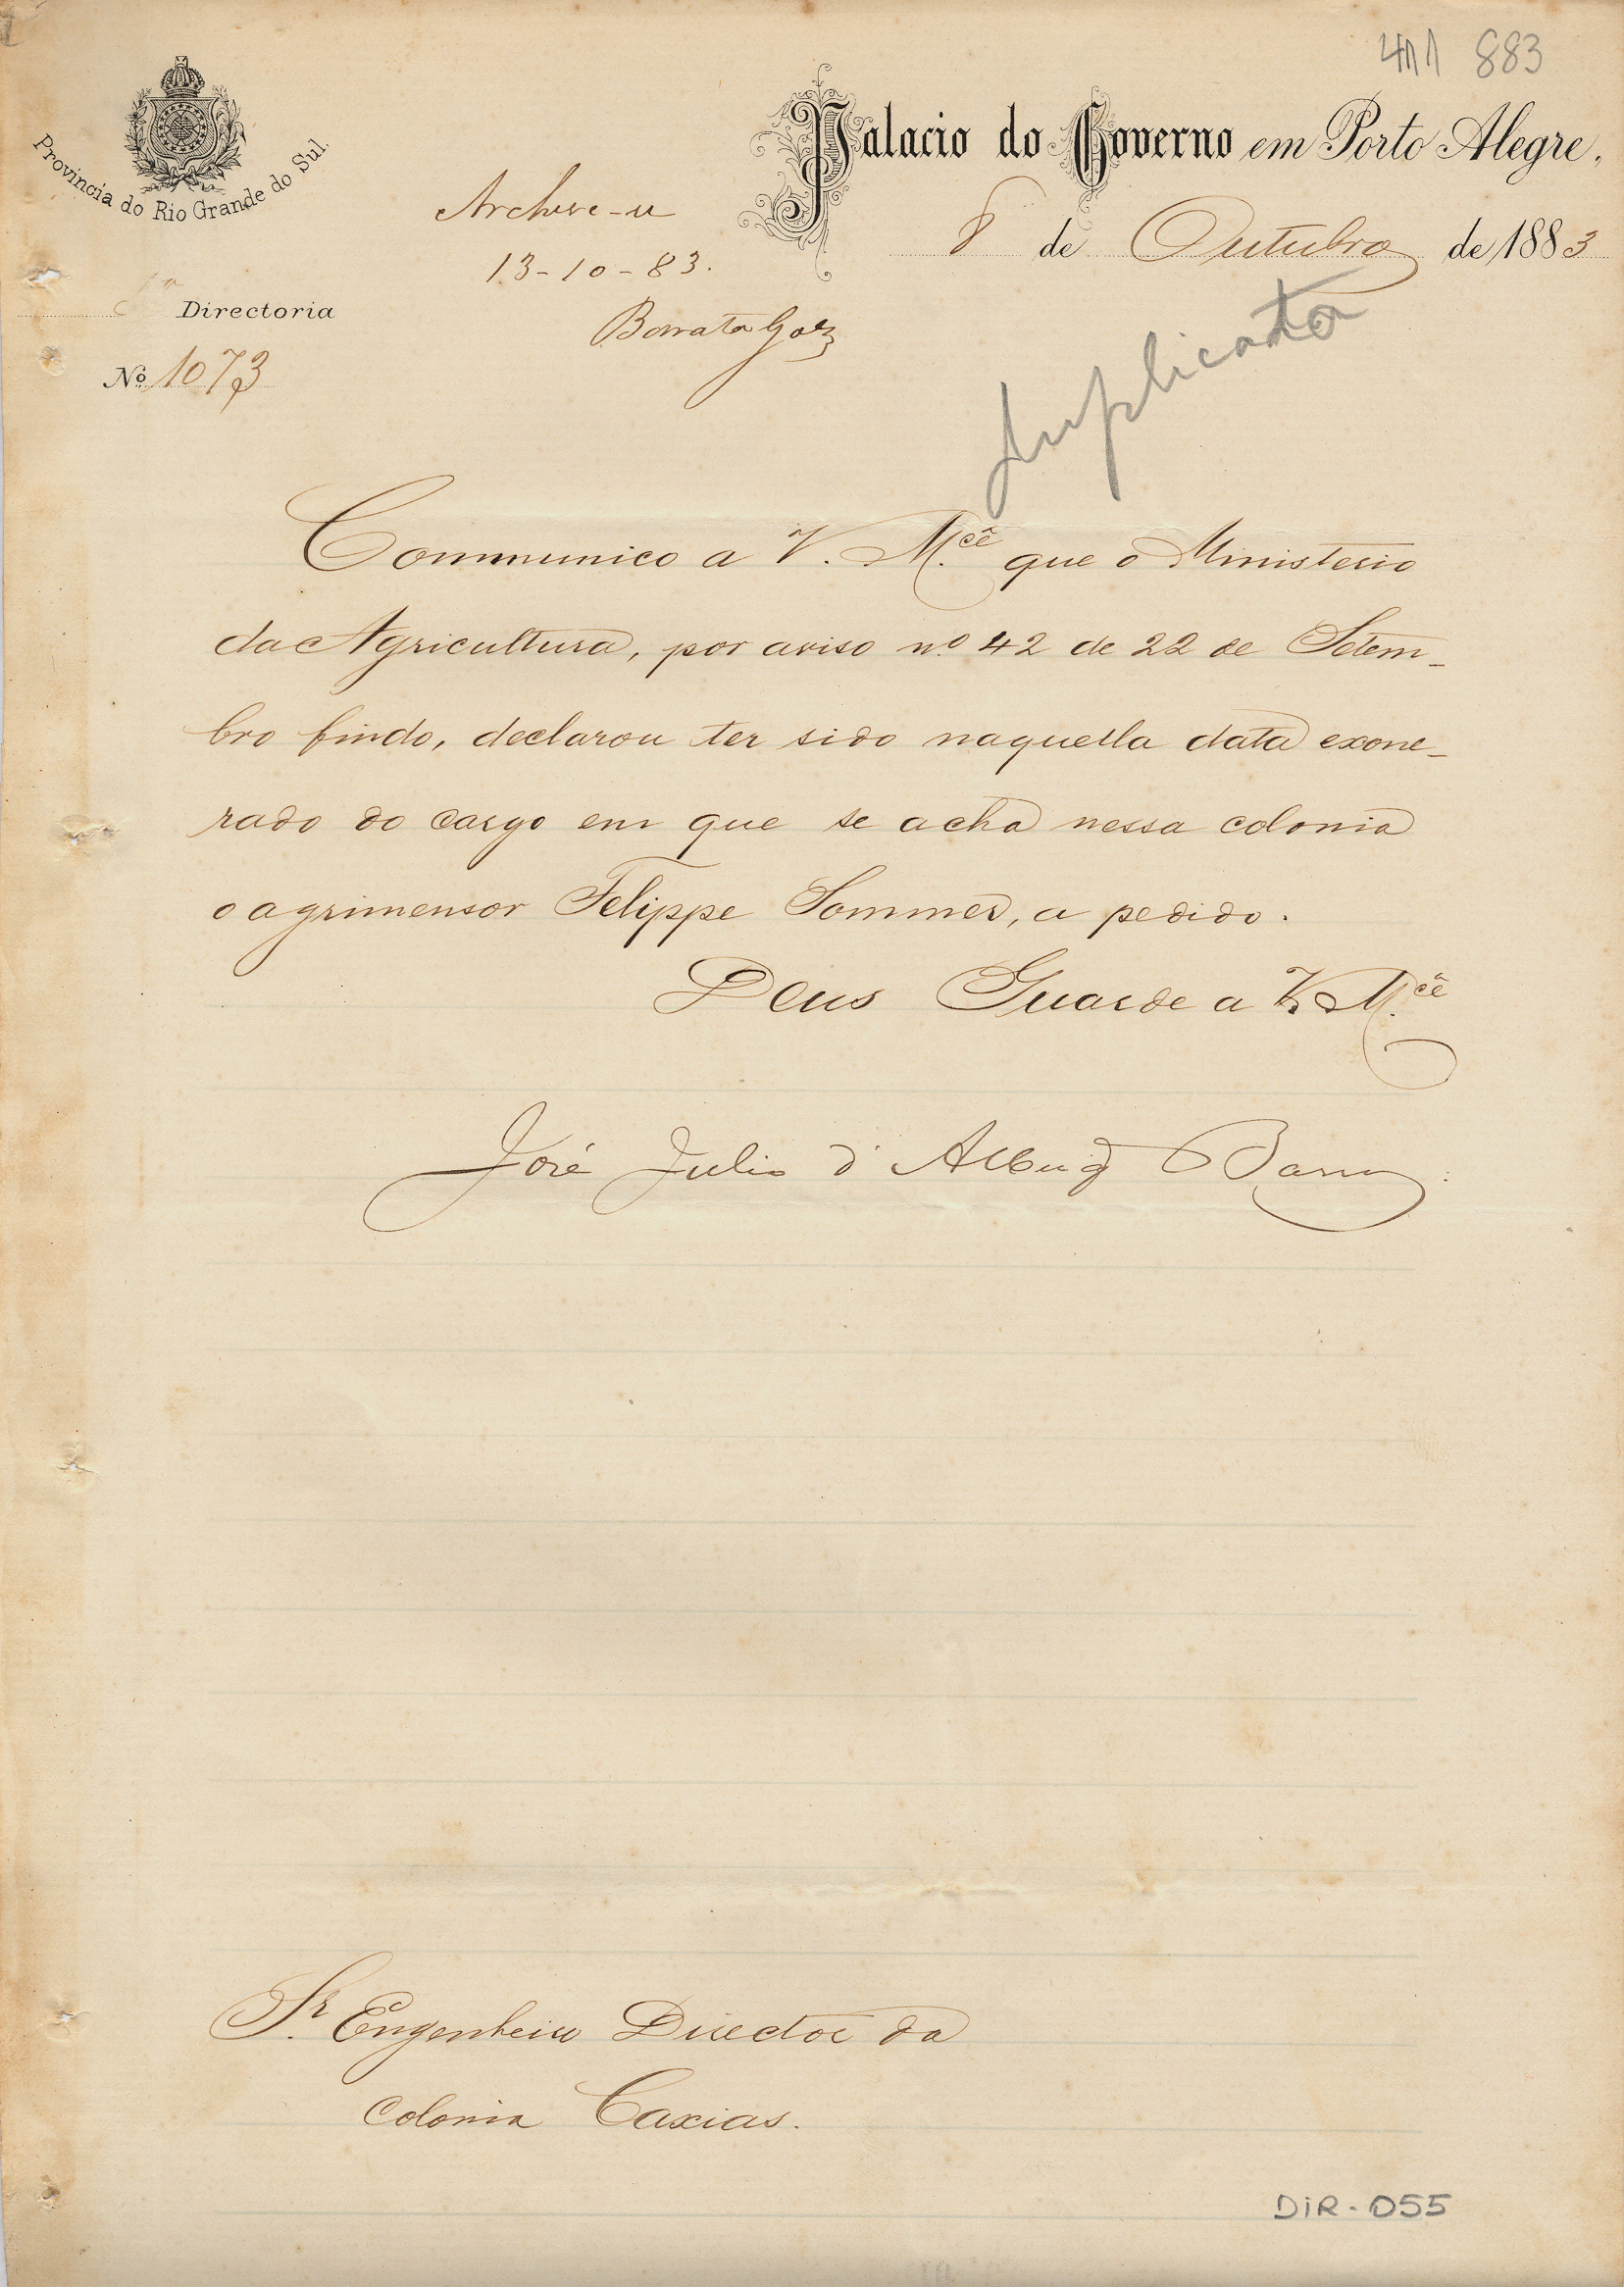 411 883
Provincia do Rio Grande do Sul.
Palacio do Governo em Porto Alegre,
8 de Outubro de 1883
Archive-se
13-10-83.
Directoria
Barrata Góes
Nº 1073
Duplicata
Communico a V. M.cê que o Ministerio
da Agricultura, por aviso nº 42 de 22 de Setem-
bro findo, declarou ter sido naquella data exone-
rado do cargo em que se acha nessa colonia
o agrimensor Felippe Sommer, a pedido.
Deus Guarde a V. M.cê
José Julio d'Albuq Barros
Sr. Engenheiro Director da
Colonia Caxias.
DIR-055